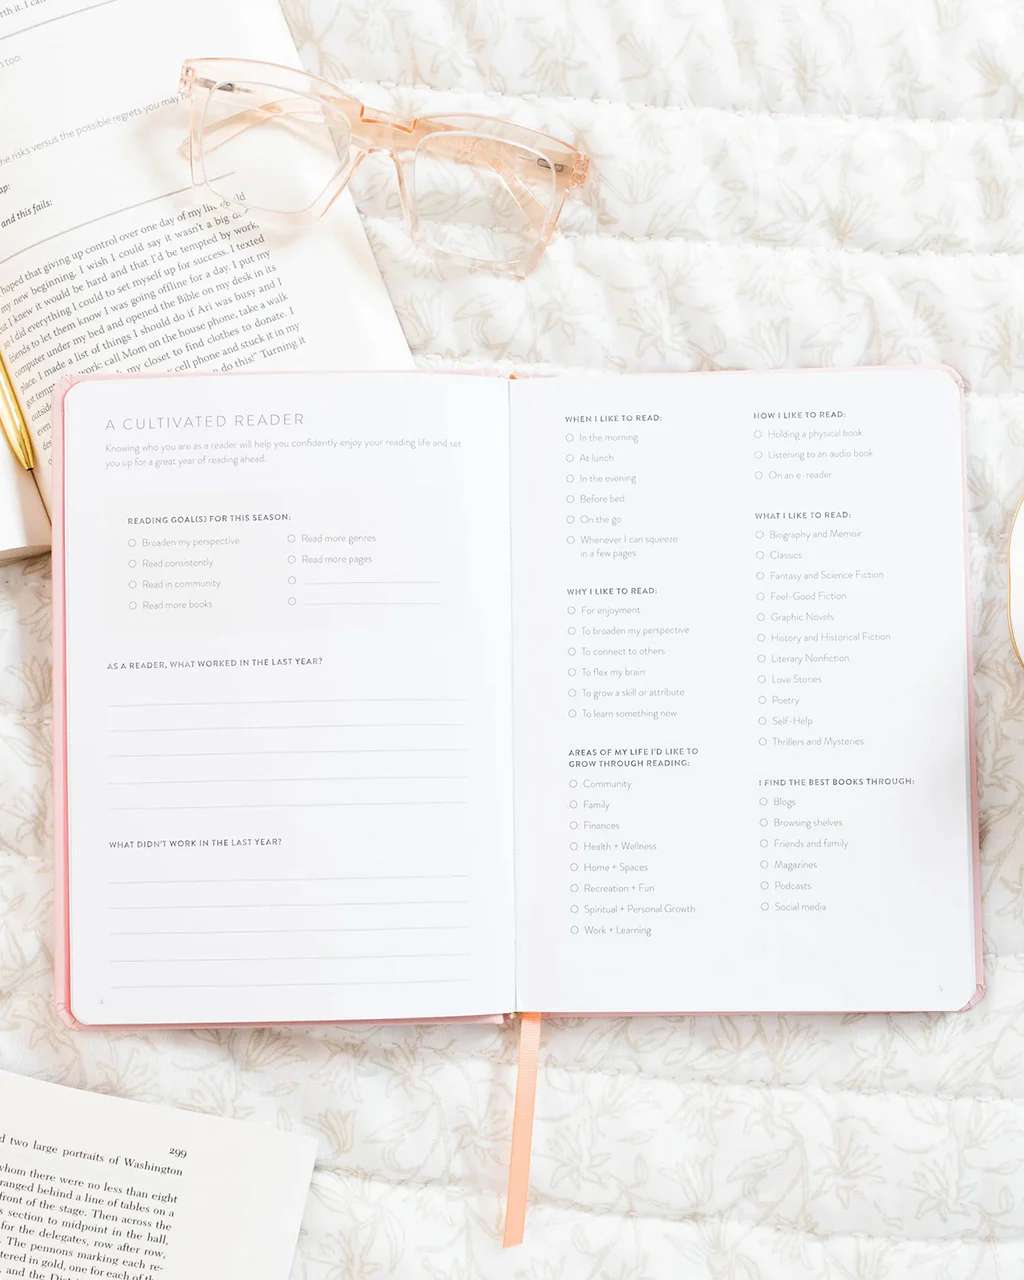 rth it. I can
n too:
he risks versus the possible regrets you may
ap:
and this fails:
hoped that giving up control over one day of my life
my new beginning. I wish I could say it wasn't a big
I knew it would be hard and that I'd be tempted by work,
so I did everything I could to set myself up for success. I texted
friends to let them know I was going offline for a day. I put my
computer under my bed and opened the Bible on my desk in its
place. I made a list of things I should do if Ari was busy and I
got work: call Mom on the house phone, take a walk
outside my closet to find clothes to donate. I
even cell phone and stuck it in my
do this!" "Turning it
A CULTIVATED READER
Knowing who you are as a reader will help you confidently enjoy your reading life and set
you up for a great year of reading ahead.
READING GOAL(S) FOR THIS SEASON:
Broaden my perspective
Read consistently
Read in community
Read more books
Read more genres
Read more pages
AS A READER, WHAT WORKED IN THE LAST YEAR?
WHAT DIDN'T WORK IN THE LAST YEAR?
4
WHEN I LIKE TO READ:
In the morning
At lunch
In the evening
Before bed
On the go
Whenever I can squeeze
in a few pages
WHY I LIKE TO READ:
For enjoyment
To broaden my perspective
To connect to others
To flex my brain
To grow a skill or attribute
To learn something new
AREAS OF MY LIFE I'D LIKE TO
GROW THROUGH READING:
Community
Family
Finances
Health + Wellness
Home + Spaces
Recreation + Fun
Spiritual + Personal Growth
Work + Learning
HOW I LIKE TO READ:
Holding a physical book
Listening to an audio book
On an e-reader
WHAT I LIKE TO READ:
Biography and Memoir
Classics
Fantasy and Science Fiction
Feel-Good Fiction
Graphic Novels
History and Historical Fiction
Literary Nonfiction
Love Stories
Poetry
Self-Help
Thrillers and Mysteries
I FIND THE BEST BOOKS THROUGH:
Blogs
Browsing shelves
Friends and family
Magazines
Podcasts
Social media
5
299
d two large portraits of Washington
whom there were no less than eight
ranged behind a line of tables on a
front of the stage. Then across the
s section to midpoint in the hall,
for the delegates, row after row,
. The pennons marking each re-
tered in gold, one for each of the
, and the